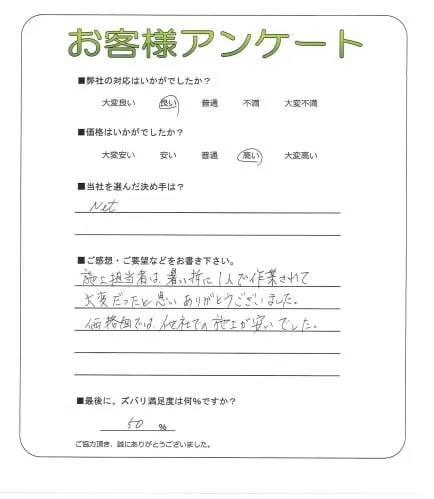 お客様アンケート
■弊社の対応はいかがでしたか？
大変良い 良い 普通 不満 大変不満
■価格はいかがでしたか？
大変安い 安い 普通 高い 大変高い
■当社を選んだ決め手は？
Net
■ご感想・ご要望などをお書き下さい。
施工担当者は、暑い折に1人で作業されて
大変だったと思いありがとうございました。
価格面では、他社での施工が安いでした。
■最後に、ズバリ満足度は何%ですか？
50 %
ご協力頂き、誠にありがとうございました。